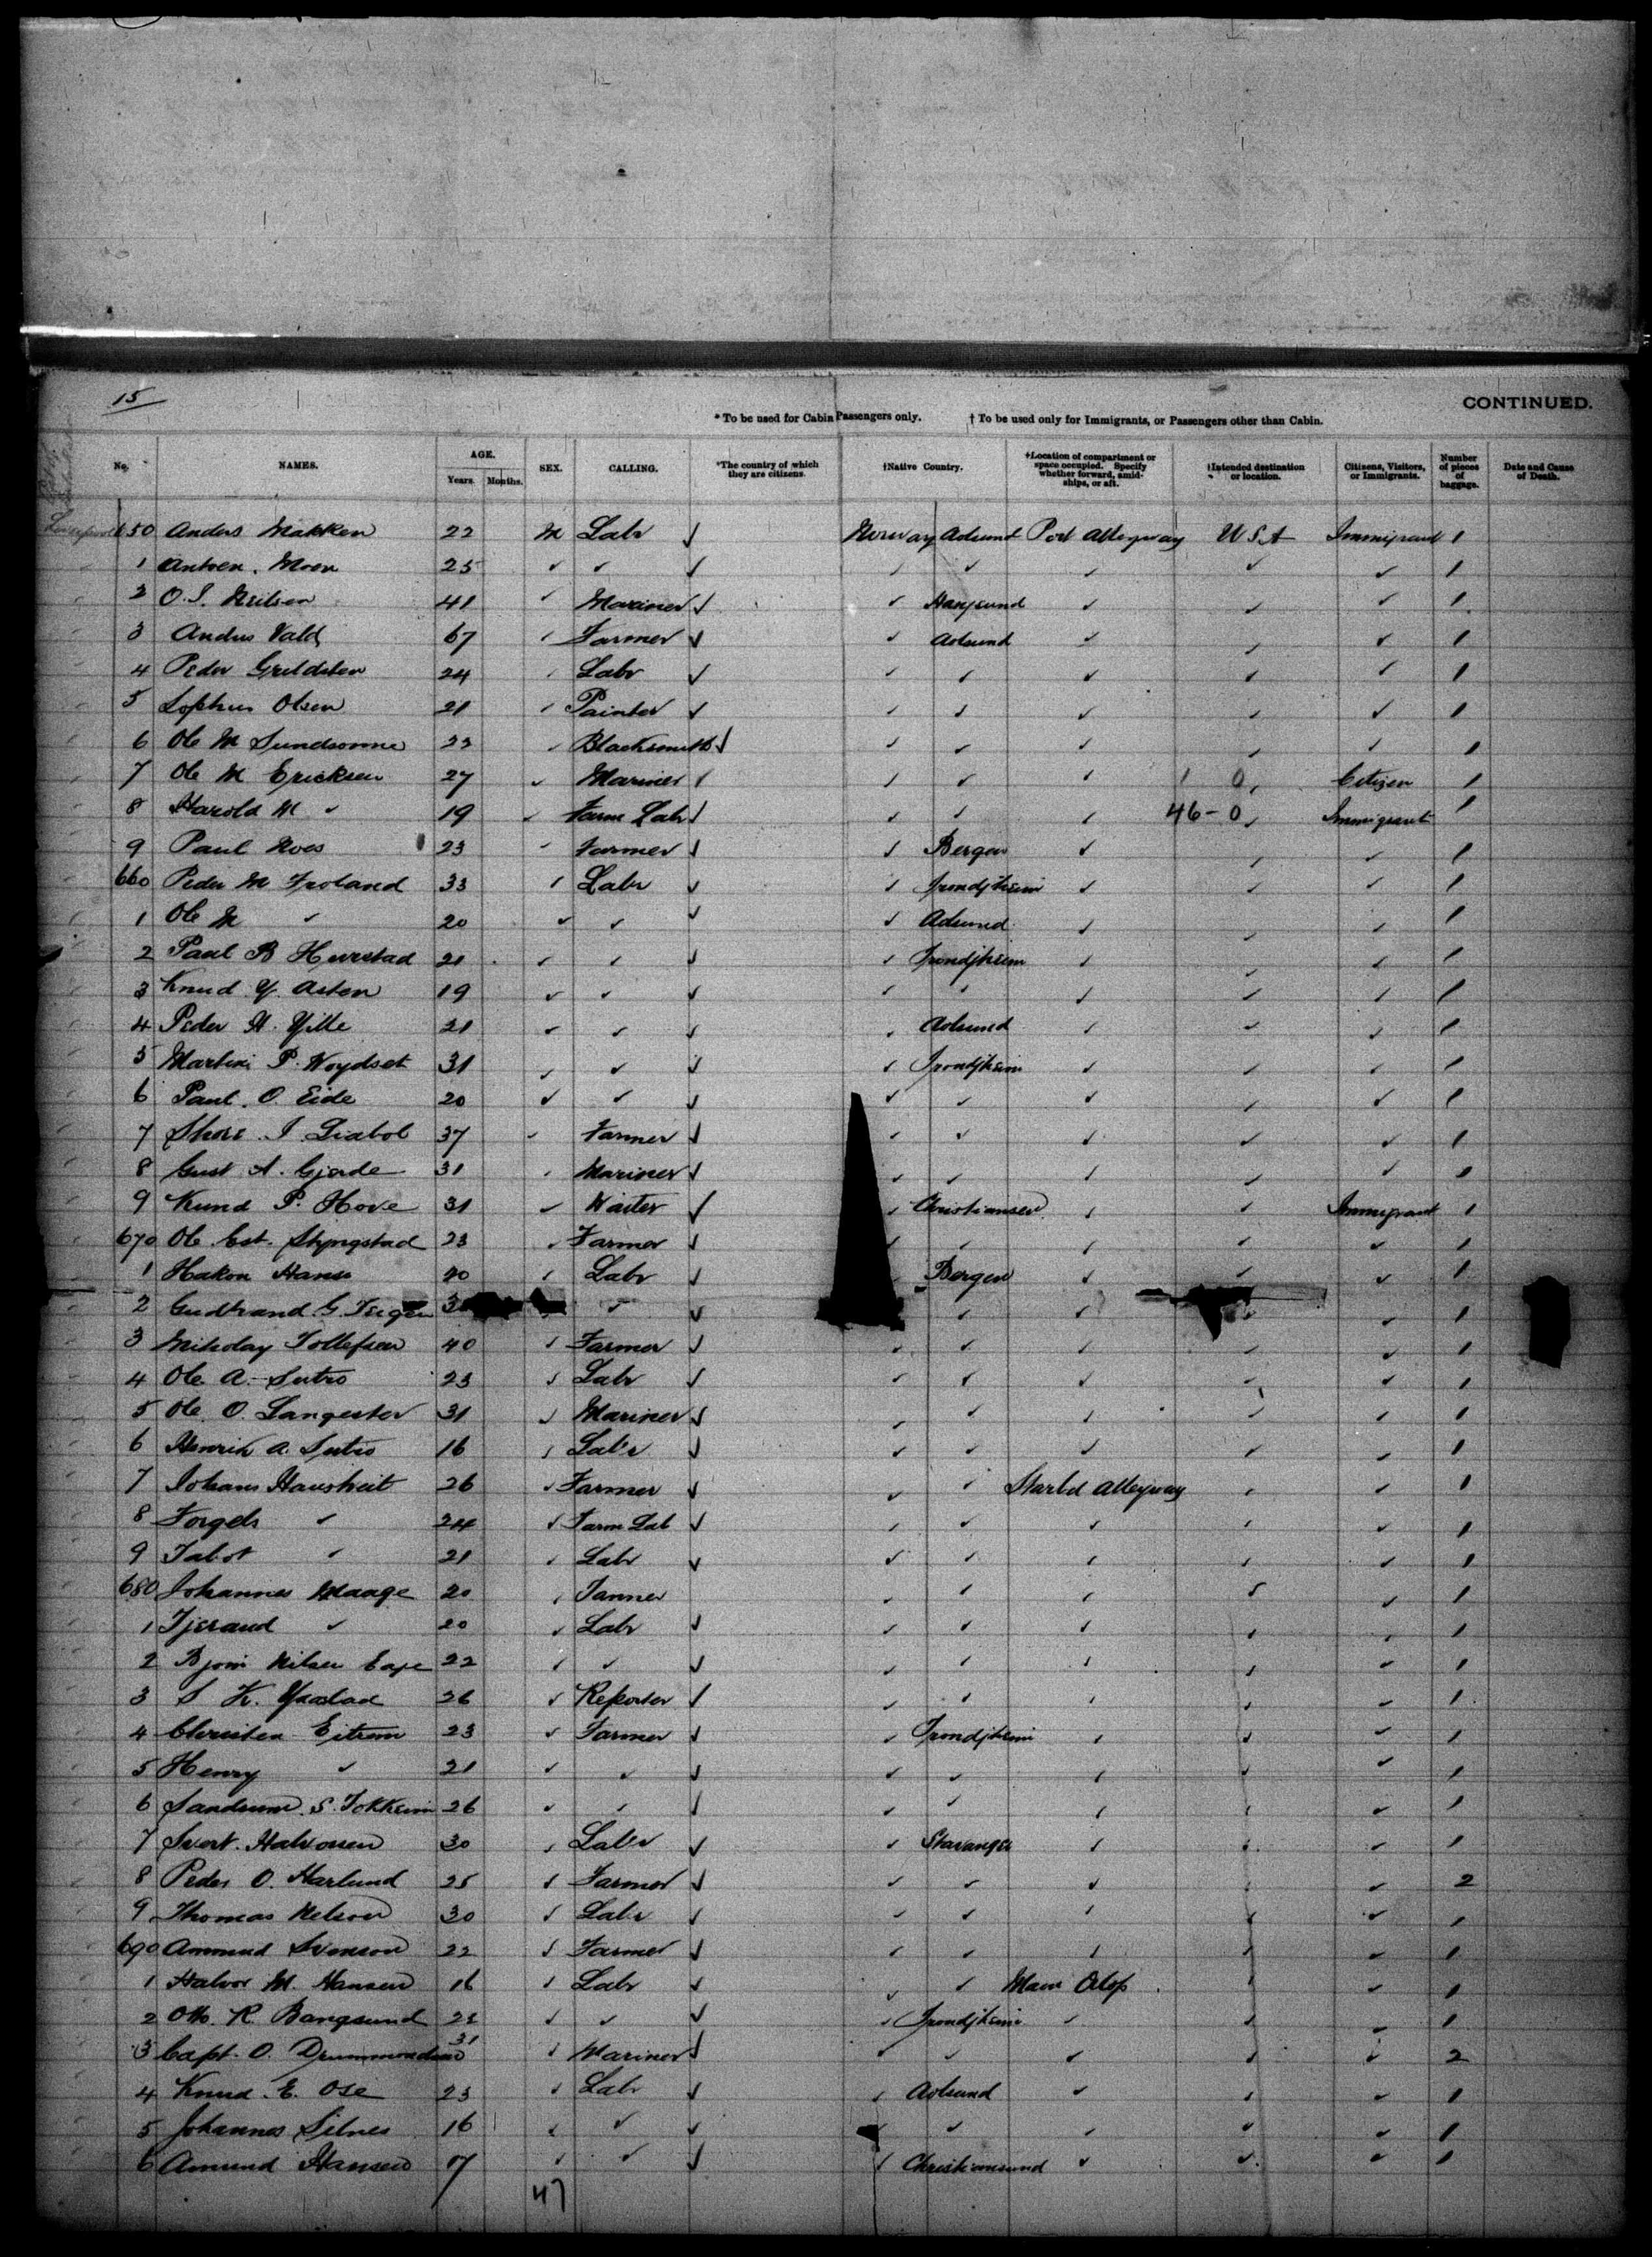 15
CONTINUED.
* To be used for Cabin Passengers only. † To be used only for Immigrants, or Passengers other than Cabin.
No. NAMES. AGE. Years. Months. SEX. CALLING. *The country of which they are citizens. †Native Country. †Location of compartment or space occupied. Specify whether forward, amidships, or aft. †Intended destination or location. Citizens, Visitors, or Immigrants. Number of pieces of baggage. Date and Cause of Death.
Liverpool 650 Anders Makken 22 M Labr ✓ Norway Aolsund Port Alleyway U.S.A Immigrant 1
1 Antoen. Moen 25 ✓ ✓ ✓ ✓ ✓ ✓ ✓ ✓ 1
2 O. I. Neilsen 41 ✓ Mariner ✓ ✓ ✓ ✓ ✓ 1
3 Andus Vald 67 ✓ Farmer ✓ ✓ Aolsund ✓ ✓ ✓ 1
4 Peder 24 ✓ Labr ✓ ✓ ✓ ✓ ✓ ✓ 1
5 Sophus Olsen 21 ✓ Painter ✓ ✓ ✓ ✓ ✓ ✓ 1
6 Ole M Sundsonne 22 ✓ Blacksmith ✓ ✓ ✓ ✓ ✓ ✓ 1
7 Ole M Ericksen 27 ✓ Mariner ✓ ✓ ✓ ✓ 1 0 ✓ Citizen 1
8 Harold M ✓ 19 ✓ Farm Labr ✓ ✓ ✓ ✓ 46-0 ✓ Immigrant 1
9 Paul Roes 23 ✓ Farmer ✓ ✓ Bergen ✓ ✓ ✓ 1
660 Peder M Froland 33 ✓ Labr ✓ ✓ Trondjheim ✓ ✓ ✓ 1
1 Ole M ✓ 20 ✓ ✓ ✓ ✓ Aolsund ✓ ✓ ✓ 1
2 Paul B Hurstad 21 ✓ ✓ ✓ ✓ Trondjheim ✓ ✓ ✓ 1
3 Knud Y. Asten 19 ✓ ✓ ✓ ✓ ✓ ✓ ✓ ✓ 1
4 Peder H. 21 ✓ ✓ ✓ ✓ Aolsund ✓ ✓ ✓ 1
5 P. Hoydset 31 ✓ ✓ ✓ ✓ Trondjheim ✓ ✓ ✓ 1
6 Paul. O. Eide 20 ✓ ✓ ✓ ✓ ✓ ✓ ✓ ✓ 1
7 I. Diabol 37 ✓ Farmer ✓ ✓ ✓ ✓ ✓ ✓ 1
8 Gust A. Gjerde 31 ✓ Mariner ✓ ✓ ✓ ✓ ✓ ✓ 1
9 Knud P. Hove 31 ✓ Waiter ✓ ✓ Christiansen ✓ ✓ Immigrant 1
670 Ole Est. Styngstad 23 ✓ Farmer ✓ ✓ ✓ ✓ ✓ ✓ 1
1 Hakon Hanse 20 ✓ Labr ✓ Bergen ✓ ✓ ✓ 1
2 Gudbrand G. 3 ✓ ✓ ✓ ✓ ✓ ✓ 1
3 Nikolay Tollefsen 40 ✓ Farmer ✓ ✓ ✓ ✓ ✓ ✓ 1
4 Ole A. Sutro 23 ✓ Labr ✓ ✓ ✓ ✓ ✓ ✓ 1
5 Ole O. Langester 31 ✓ Mariner ✓ ✓ ✓ ✓ ✓ ✓ 1
6 Henrik A. Sutro 16 ✓ Labr ✓ ✓ ✓ ✓ ✓ ✓ 1
7 Johans Hausheit 26 ✓ Farmer ✓ ✓ ✓ Starbd Alleyway ✓ ✓ 1
8 Torgels ✓ 24 ✓ Farm Lab ✓ ✓ ✓ ✓ ✓ ✓ 1
9 Tabot ✓ 21 ✓ Labr ✓ ✓ ✓ ✓ ✓ ✓ 1
680 Johannes Maage 20 ✓ Tanner ✓ ✓ ✓ ✓ ✓ 1
1 Tjeraud ✓ 20 ✓ Labr ✓ ✓ ✓ ✓ ✓ ✓ 1
2 Bjorn Nilsen Eape 22 ✓ ✓ ✓ ✓ ✓ ✓ ✓ ✓ 1
3 S K. 26 ✓ Reporter ✓ ✓ ✓ ✓ ✓ ✓ 1
4 Christen Eitrem 23 ✓ Farmer ✓ ✓ Trondjheim ✓ ✓ ✓ 1
5 Henry ✓ 21 ✓ ✓ ✓ ✓ ✓ ✓ ✓ ✓ 1
6 S. Tokheim 26 ✓ ✓ ✓ ✓ ✓ ✓ ✓ ✓ 1
7 Sivert. Halvorsen 30 ✓ Labr ✓ ✓ Stavanger ✓ ✓ ✓ 1
8 Peder O. Harlund 25 ✓ Farmer ✓ ✓ ✓ ✓ ✓ ✓ 2
9 Thomas Nelson 30 ✓ Labr ✓ ✓ ✓ ✓ ✓ ✓ 1
690 Ammund Svenson 22 ✓ Farmer ✓ ✓ ✓ ✓ ✓ ✓ 1
1 Halvor M. Hansen 16 ✓ Labr ✓ ✓ ✓ Main Orlop ✓ ✓ 1
2 Otto. R. Bangsund 22 ✓ ✓ ✓ ✓ Trondjheim ✓ ✓ ✓ 1
3 Capt. O. 31 ✓ Mariner ✓ ✓ ✓ ✓ ✓ ✓ 2
4 Knud. E. Ose 23 ✓ Labr ✓ ✓ Aolsund ✓ ✓ ✓ 1
5 Johannes Silnes 16 ✓ ✓ ✓ ✓ ✓ ✓ ✓ ✓ 1
6 Amund Hansen 17 ✓ ✓ ✓ ✓ Christiansund ✓ ✓ ✓ 1
47